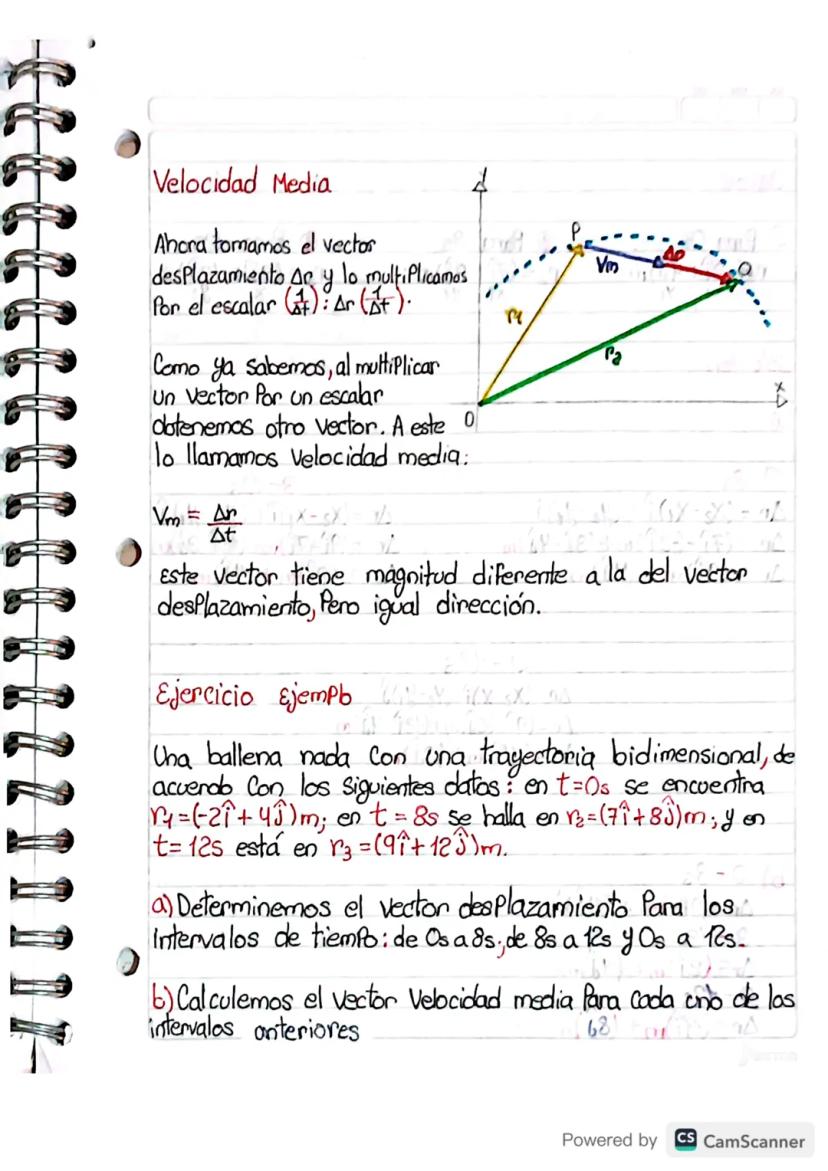 Velocidad Media
Ahora tomamos el vector
desplazamiento Δr y lo multiplicamos
Por el escalar (1/Δt) : Δr (1/Δt).
Como ya sabemos, al multiplicar
un vector Por un escalar
obtenemos otro vector. A este
lo llamamos Velocidad media:
y
P
Vm
Δr
Q
r1
r2
x
0
Vm = Δr/Δt
Este vector tiene magnitud diferente a la del vector
desplazamiento, Pero igual dirección.
Ejercicio Ejemplo
Una ballena nada con una trayectoria bidimensional, de
acuerdo con los siguientes datos : en t=0s se encuentra
r1=(-2î + 4ĵ)m; en t = 8s se halla en r2=(7î+8ĵ)m ; y en
t= 12s está en r3 =(9î+12ĵ)m.
a) Determinemos el vector desplazamiento Para los
intervalos de tiempo: de 0s a 8s; de 8s a 12s y 0s a 12s.
b) Calculemos el vector Velocidad media Para cada uno de los
intervalos anteriores
68
Powered by CS CamScanner